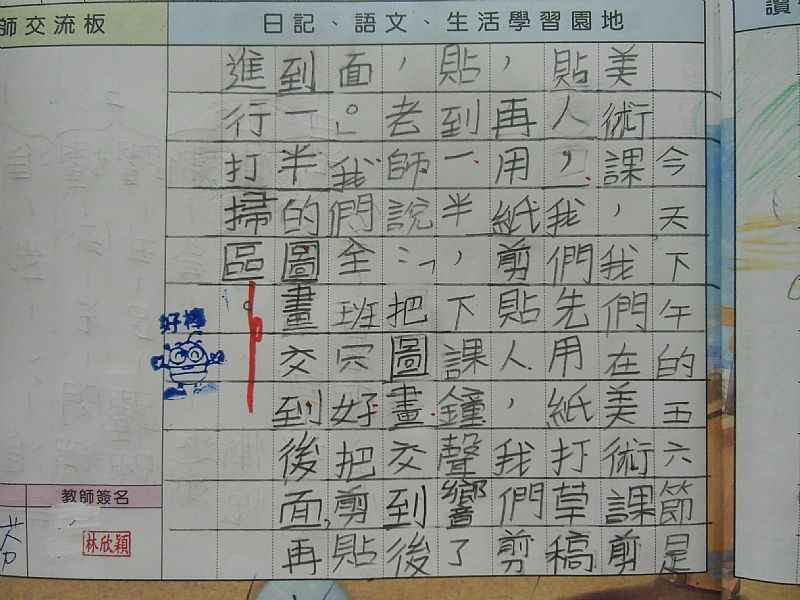 師交流板
日記、語文、生活學習園地
讀
今天下午的五六節是
美術課，我們在美術課剪
貼人，我們先用紙打草稿
，再用紙剪貼人，我們剪
貼到一半，下課鐘聲響了
，老師說：「把圖畫交到後
面。」我們全班只好把剪貼
到一半的圖畫交到後面，再
進行打掃區。
好棒
教師簽名
林欣穎